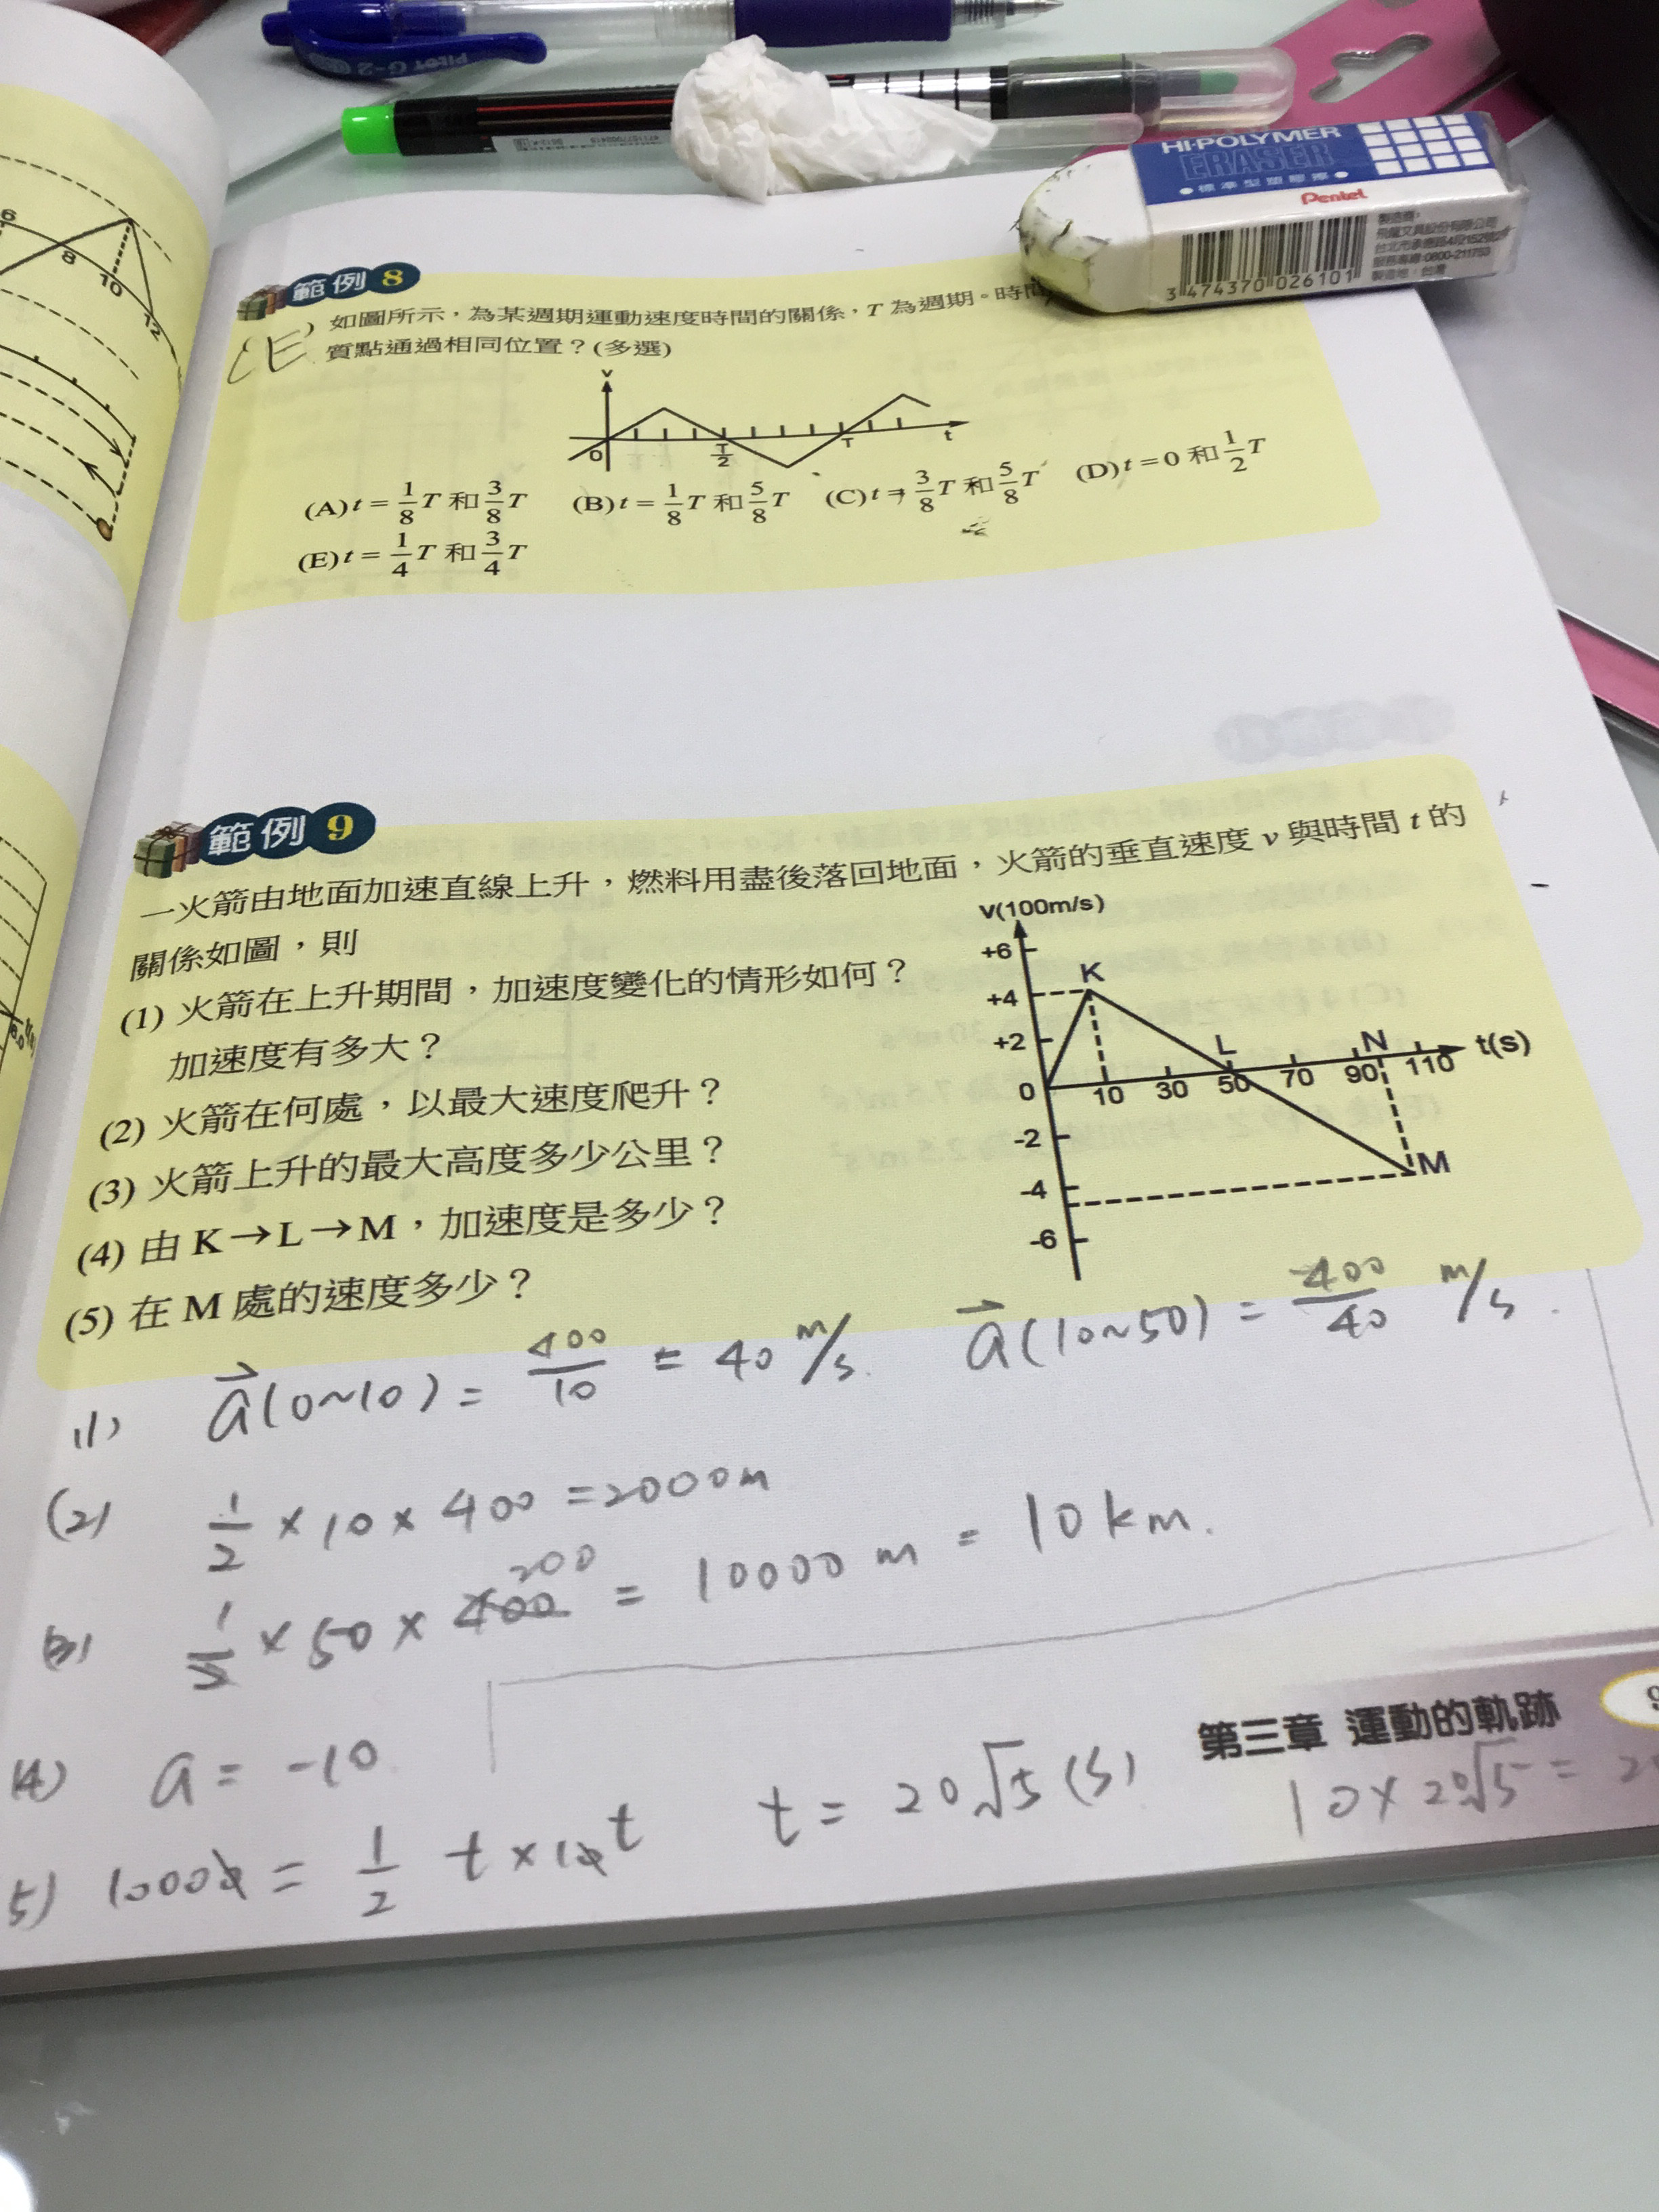 PILOT G-2
HI-POLYMER
ERASER
●標準型塑膠擦●
Pentel
3 474370 026101
製造地:台灣
6
8
10
12
範例 8
CE
) 如圖所示,為某週期運動速度時間的關係,T 為週期。時間
質點通過相同位置?(多選)
v
0
T/2
T
t
(A) t = 1/8 T 和 3/8 T (B) t = 1/8 T 和 5/8 T (C) t = 3/8 T 和 5/8 T (D) t = 0 和 1/2 T
(E) t = 1/4 T 和 3/4 T
範例 9
一火箭由地面加速直線上升,燃料用盡後落回地面,火箭的垂直速度 v 與時間 t 的
關係如圖,則
(1) 火箭在上升期間,加速度變化的情形如何?
加速度有多大?
(2) 火箭在何處,以最大速度爬升?
(3) 火箭上升的最大高度多少公里?
(4) 由 K→L→M,加速度是多少?
(5) 在 M 處的速度多少?
V(100m/s)
+6
+4
+2
0
-2
-4
-6
K
L
N
M
10 30 50 70 90 110
t(s)
(1) a(0~10) = 400/10 = 40 m/s. a(10~50) = -400/40 m/s.
(2) 1/2 × 10 × 400 = 2000m
200
(3) 1/2 × 50 × 400 = 10000 m = 10 km.
(4) a = -10
5) 10000 = 1/2 t × 10 t t = 20√5 (s) 10 × 20√5 = 20
第三章 運動的軌跡 9